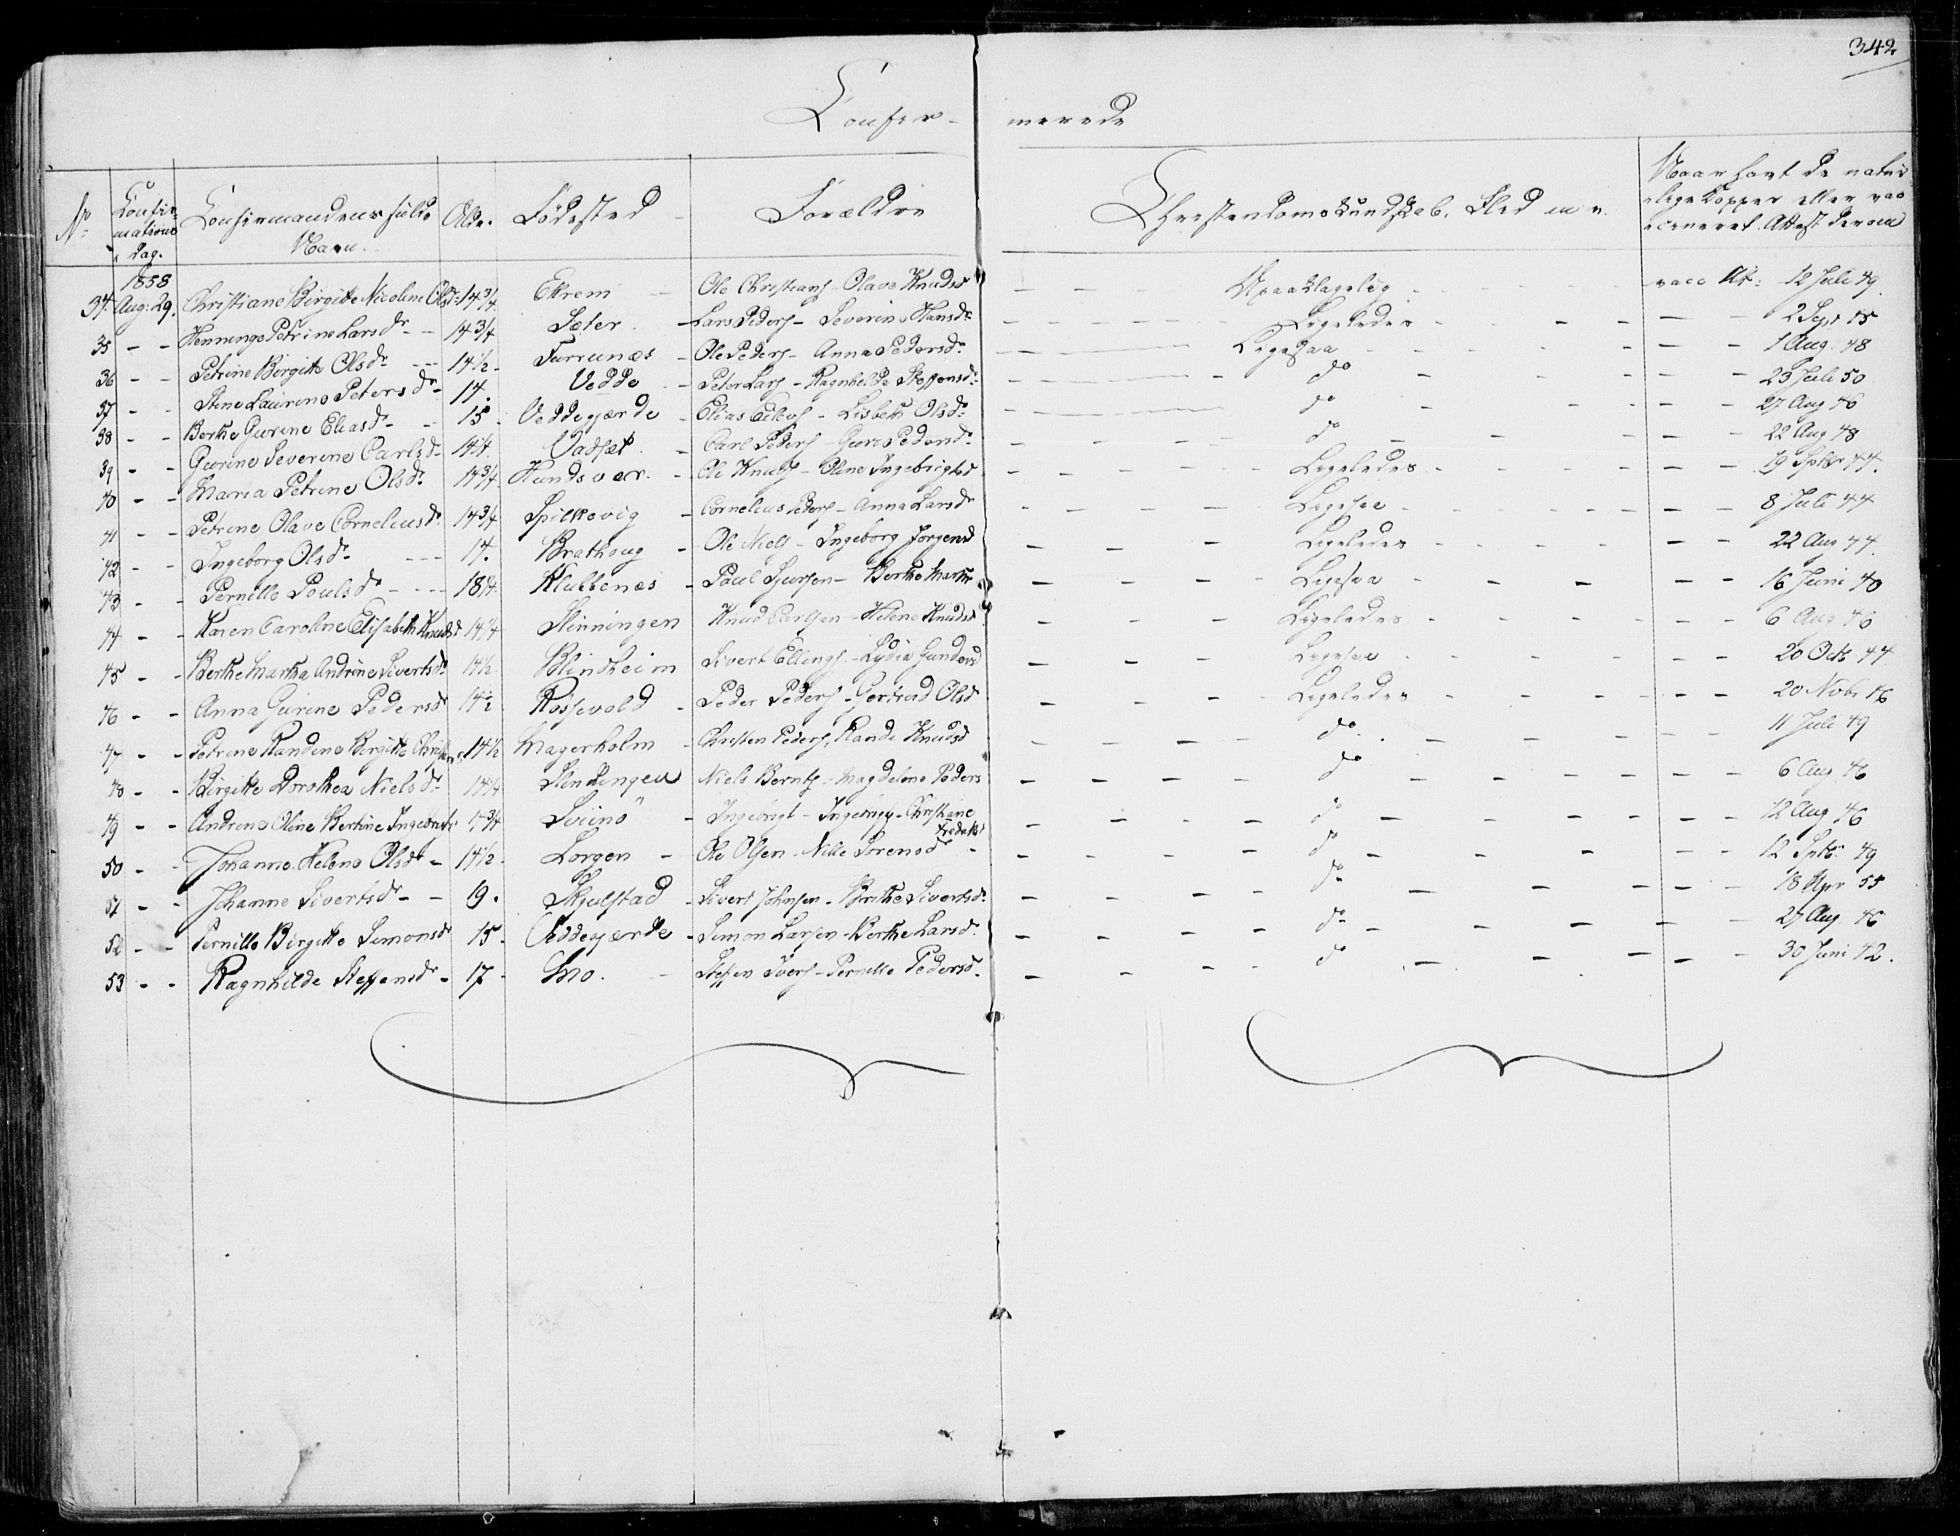 342
Confir- merede
No Confirmations Dag. Confirmandens fulde Navn. Alder Fødested Forældre Christendomskundskab, Flid m. v. Naar havt de naturlige Kopper eller vaccineret. Attest derom
1858
34. Aug: 29. Christiane Birgitte Nicoline Olsdr 14 3/4 Ekrem — Ole Christians - Olave Knudsd — — Upaaklagelig - - - - - vacc At: 12 Juli 49.
35 - - Henninge Petrine Larsdr - - 14 3/4 Sæter. - Lars Peders - Severine Hansdr - - - - - Ligeledes - - - - - - 2 Sept 45
36 - - Petrine Birgitte Olsdr - - - 14 1/2 - Furrunæs - Ole Peders - Anna Pedersdr - - - Ligesaa - - - - - - 1 Aug. 48
37 - - Stine Laurine Petersdr - 14. Vedde - Peter Lars - Ragnhilde Steffensdr - - - - do - - - - - - 23 Juli 50
38 - - Berthe Gurine Eliasd - - 15 - Veddegjærde - Elias Ellefs - Lisbeth Olsdr - - - do - - - - - 27 Aug 46
39 - - Gurine Severine Carlsd - 14 1/4. Vadset. - Carl Peders - Guri Pedersdr - - - do - - - - - 22 Aug 48
40 - - Maria Petrine Olsdr 14 3/4 Hundsvær. - Ole Knuds - Oline Ingebrigtsd - - - Ligeledes - - - - - - 19 Septbr 44.
41 - - Petrine Olave Corneliusdr 14 3/4 Spilkevig - Cornelius Peders - Anna Larsdr - - - - Ligesaa - - - - - - 8 Juli 44
42 - - Ingeborg Olsdr - - - 14. Brathoug - Ole Niels - Ingeborg Jørgensd - - - Ligeledes - - - - - - 22 Aug 44.
43 - - Pernille Poulsdr - - - 18 1/4. Klubbenæs - Poul Sjursen - Berthe Marthe - - - Ligesaa - - - - - - 16 Juni 40
44 - - Karen Caroline Elisabeth Knudsd 14 1/4 Slinningen Knud Carlsen - Helene Knudsd - - - Ligeledes - - - - - - 6 Aug 46
45 - - Berthe Martha Andrine Sivertsdr 14 1/2 Blindheim Sivert Ellings - Lydia Gundersd - - - Ligesaa - - - - - - 20 Octb 44
46 - - Anna Gurine Pedersdr 14 1/2 Røssevold - Peder Peders - Gertrud Olsd - - - Ligeledes - - - - - - 20 Novbr 46
47 - - Petrine Randine Birgitte 14 1/2 Magerholm - Christen Peders, Rande Knudsd - - - - do - - - - - - 11 Juli 49
48 - - Birgitte Dorothea Nielsdr 14 1/4 Slinningen Niels Bernts - Magdelene Peders - - - - do - - - - - - 6 Aug. 46
49 - - Andrine Oline Bertine 14 3/4 Sviinø - Ingebrigt - Christiane - - - - do - - - - - 12 Aug 46
50 - - Johanne Helene Olsdr - 14 1/2 - Sorgen - Ole Olsen - Nille Sørensdr - - - - - do - - - - - - 12 Septb: 49
51 - - Johanne Sivertsdr - - 19. Skjelstad - Sivert Johnsen - Berthe Sivertsdr - - - - do - - - - - - 18 Apr 55
52 - - Pernille Birgitte Simonsdr 15 - Veddegjærde - Simon Larsen - Berthe Larsd. - - - - do - - - - - - 27 Aug 46
53 - - Ragnhilde Steffensdr - 17 - Mo. - Steffen Ivers - Pernille Pedersd - - - - do - - - - - - 30 Juni 42.